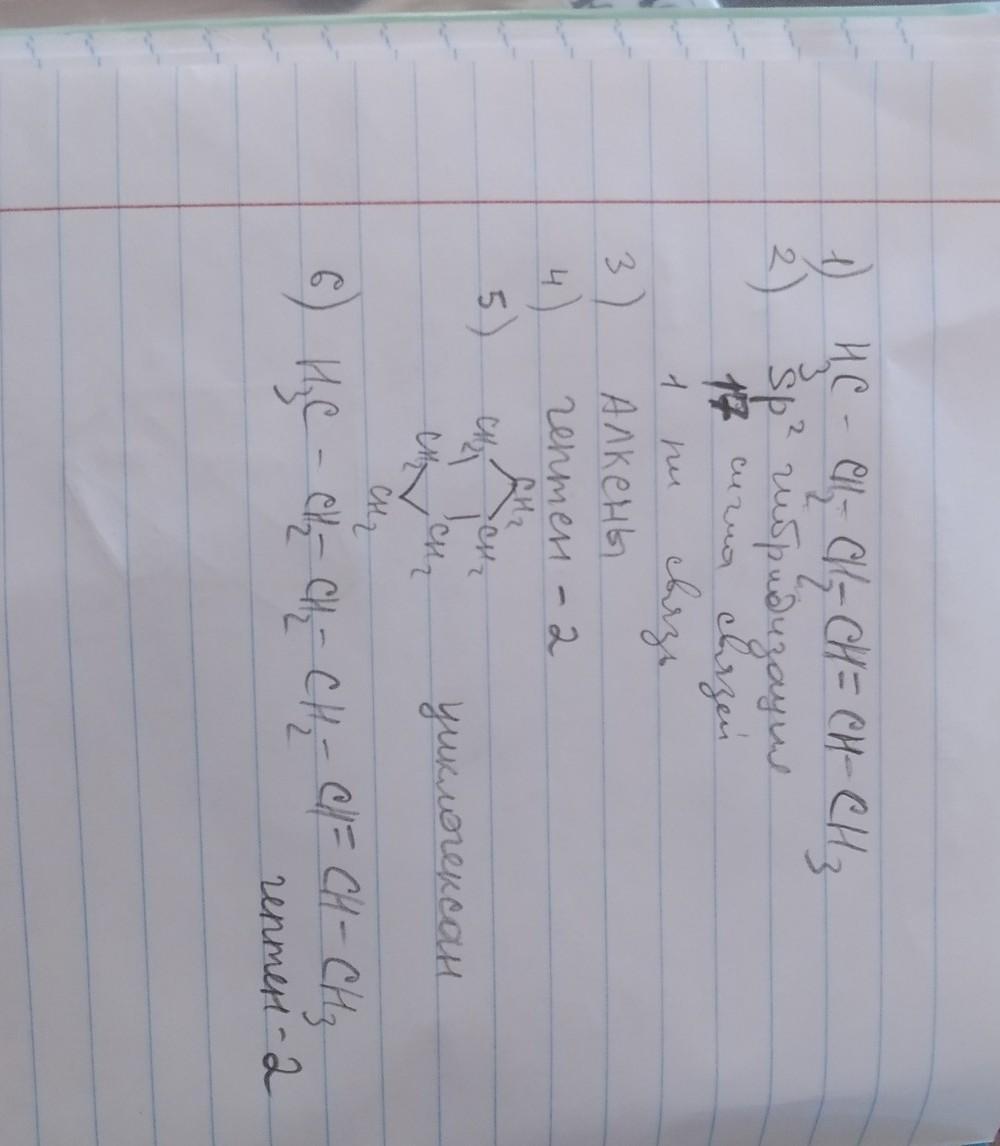 1) H₃C - CH₂ - CH₂ - CH = CH - CH₃
2) Sp² гибридизация
17 сигма связей
1 пи связь
3) Алкены
4) гептен - 2
5) CH₂ CH₂ CH₂
CH₂ CH₂ CH₂ циклогексан
6) H₃C - CH₂ - CH₂ - CH₂ - CH = CH - CH₃
гептен - 2